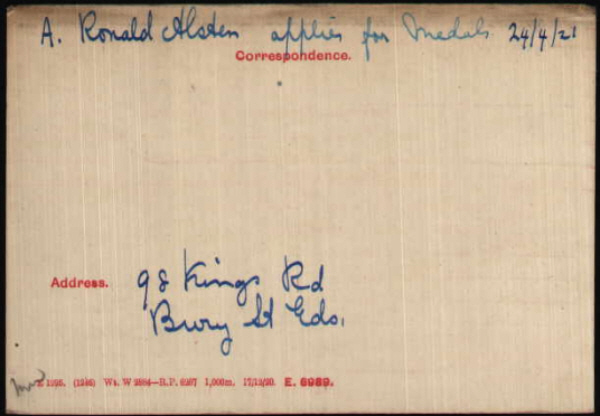 A. Ronald Alsten applies for Medals 24/4/21
Correspondence.
Address. 98 Kings Rd
Bury St Eds.
E 1925. (1936) Wt. W 2884—R.P. 6267 1,000m. 17/12/20. E. 6989.